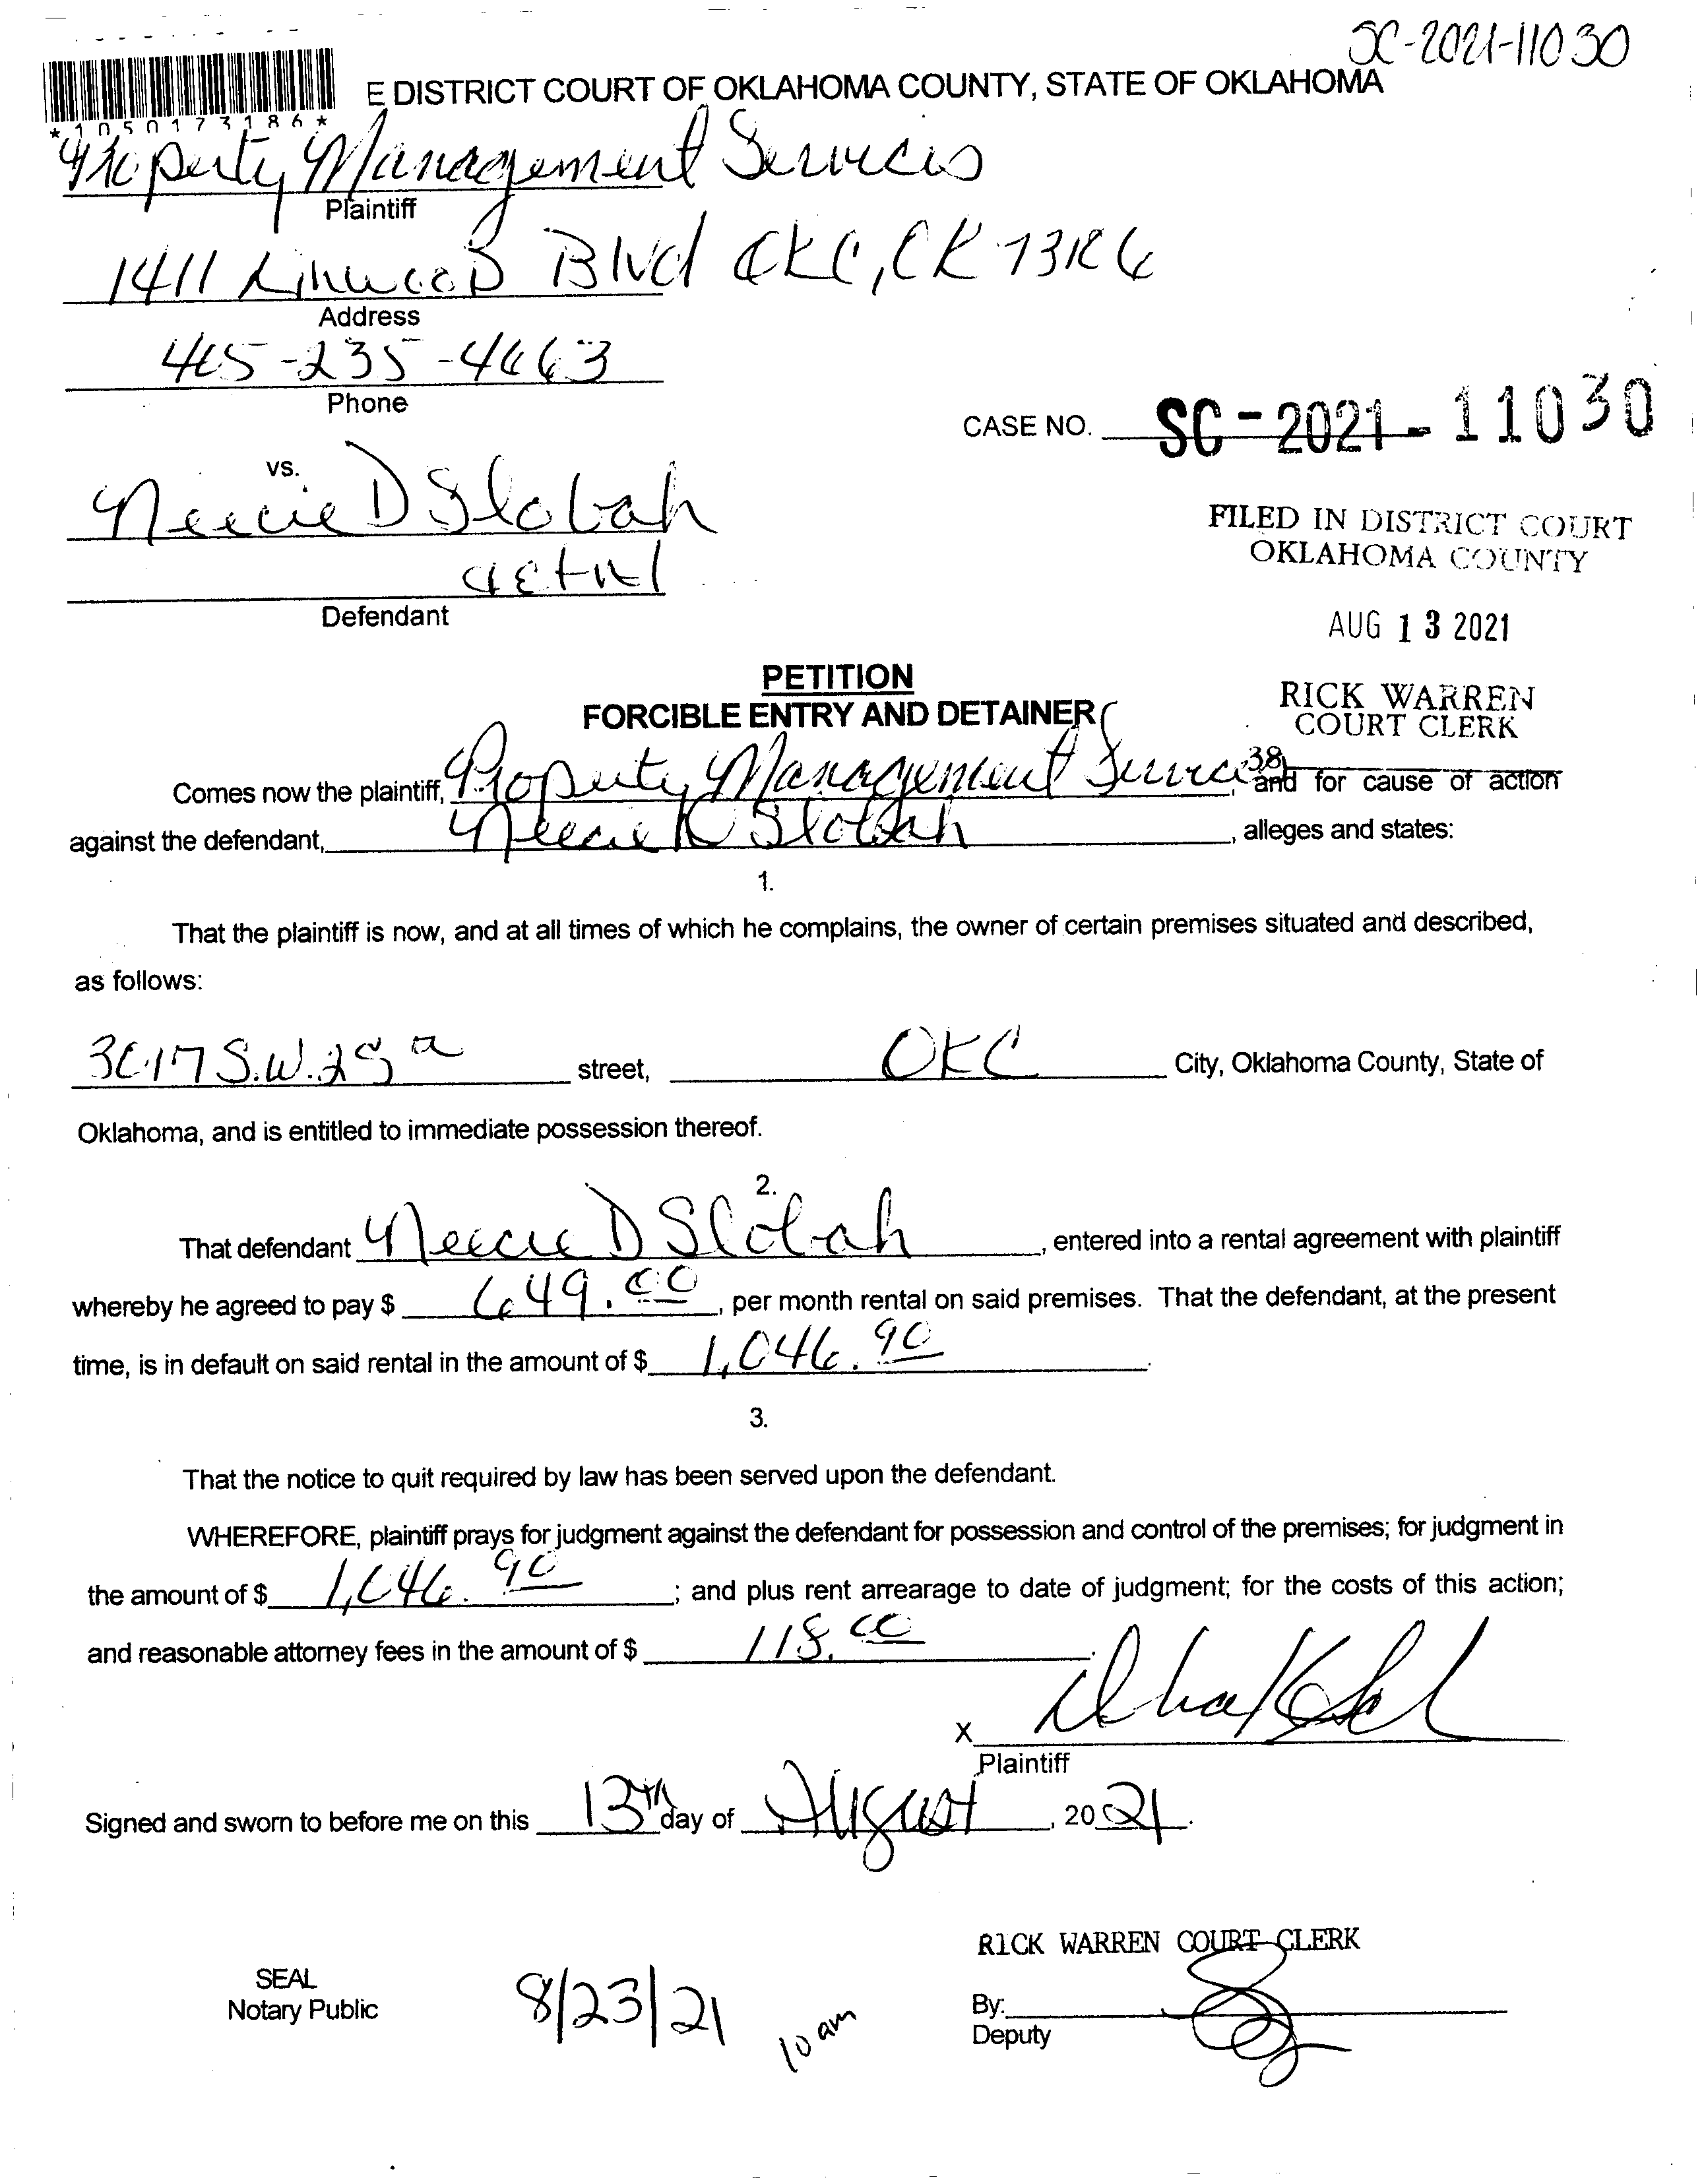 SC-2021-11030
E DISTRICT COURT OF OKLAHOMA COUNTY, STATE OF OKLAHOMA
*1050173186*
Property Management Services
Plaintiff
1411 Linwood Blvd OKC, OK 73106
Address
405-235-4663
Phone
CASE NO. SC-2021-11030
vs.
D Slobah
FILED IN DISTRICT COURT
OKLAHOMA COUNTY
et al
Defendant
AUG 13 2021
PETITION
RICK WARREN
FORCIBLE ENTRY AND DETAINER
COURT CLERK
38
Comes now the plaintiff, Property Management Services, and for cause of action
against the defendant, D Slobah, alleges and states:
1.
That the plaintiff is now, and at all times of which he complains, the owner of certain premises situated and described,
as follows:
3017 S.W. street, OKC City, Oklahoma County, State of
Oklahoma, and is entitled to immediate possession thereof.
2.
That defendant D Slobah, entered into a rental agreement with plaintiff
whereby he agreed to pay $ 649.00, per month rental on said premises. That the defendant, at the present
time, is in default on said rental in the amount of $ 1,046.90.
3.
That the notice to quit required by law has been served upon the defendant.
WHEREFORE, plaintiff prays for judgment against the defendant for possession and control of the premises; for judgment in
the amount of $ 1,046.90; and plus rent arrearage to date of judgment; for the costs of this action;
and reasonable attorney fees in the amount of $ 118.00.
X
Plaintiff
Signed and sworn to before me on this 13th day of August, 2021.
RICK WARREN COURT CLERK
SEAL
Notary Public
8/23/21
10 am
By:
Deputy